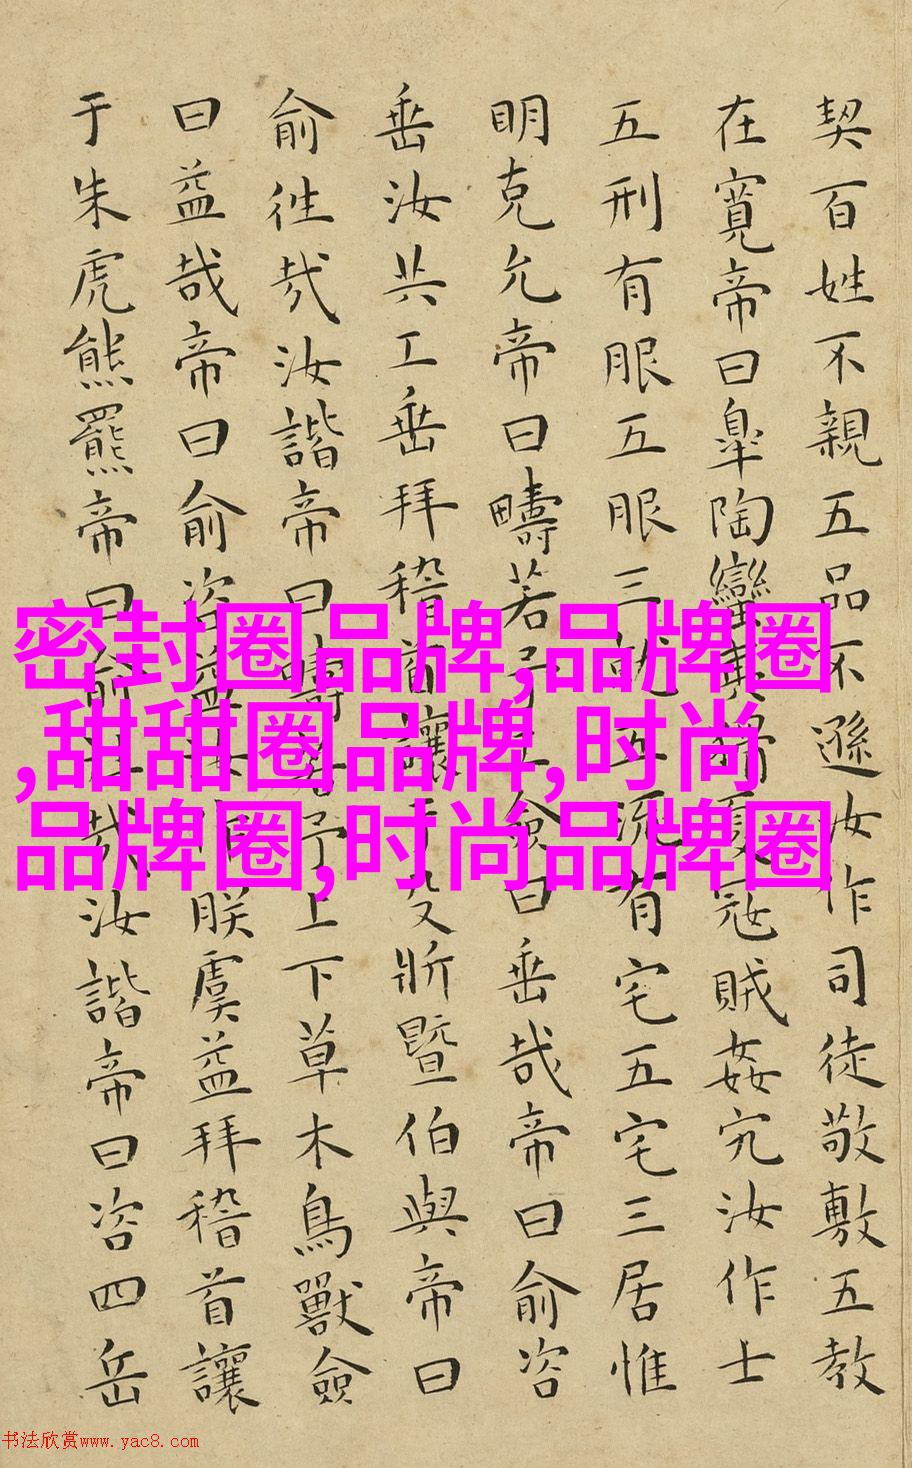 契百姓不親五品不遜汝作司徒敬敷五教
在寬帝曰皐陶蠻夷猾夏寇賊姦宄汝作士
五刑有服五服三就五流有宅五宅三居惟
明克允帝曰疇若予工僉曰垂哉帝曰俞咨
垂汝共工垂拜稽首讓于殳斨暨伯與帝曰
俞往哉汝諧帝曰疇若予上下草木鳥獸僉
曰益哉帝曰俞咨益汝作朕虞益拜稽首讓
于朱虎熊羆帝曰俞往哉汝諧帝曰咨四岳
密封圈品牌,品牌圈
,甜甜圈品牌,时尚
品牌圈,时尚品牌圈
书法欣赏www.yac8.com